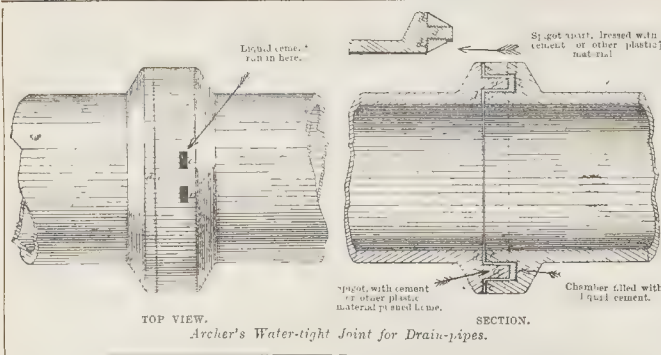 Liquid cement
run in here.
Spigot apart, dressed with
cement or other plastic
material
Spigot, with cement
or other plastic
material pushed home.
Chamber filled with
liquid cement.
TOP VIEW.
SECTION.
Archer's Water-tight Joint for Drain-pipes.